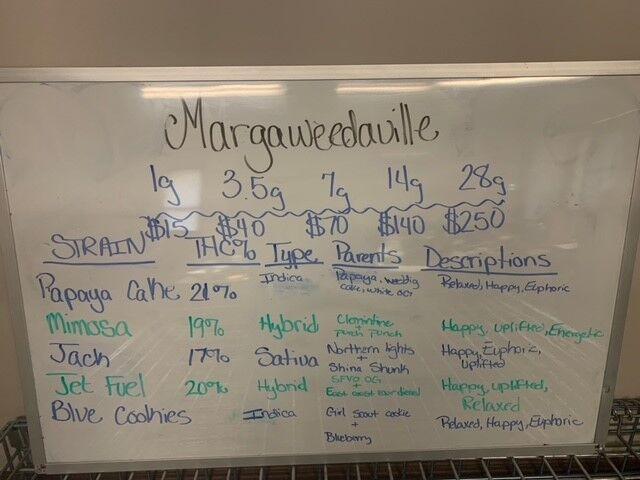 Margaweedaville
1g 3.5g 7g 14g 28g
$15 $40 $70 $140 $250
STRAIN THC% Type Parents Descriptions
Papaya Cake 21% Indica Papaya, wedding cake, white OG Relaxed, Happy, Euphoric
Mimosa 19% Hybrid Clementine + Purple punch Happy, uplifted, Energetic
Jack 17% Sativa Northern lights + Shiva Skunk Happy, Euphoric, uplifted
Jet Fuel 20% Hybrid SFVO OG + East coast sour diesel Happy, uplifted, Relaxed
Blue Cookies Indica Girl Scout cookie + Blueberry Relaxed, Happy, Euphoric